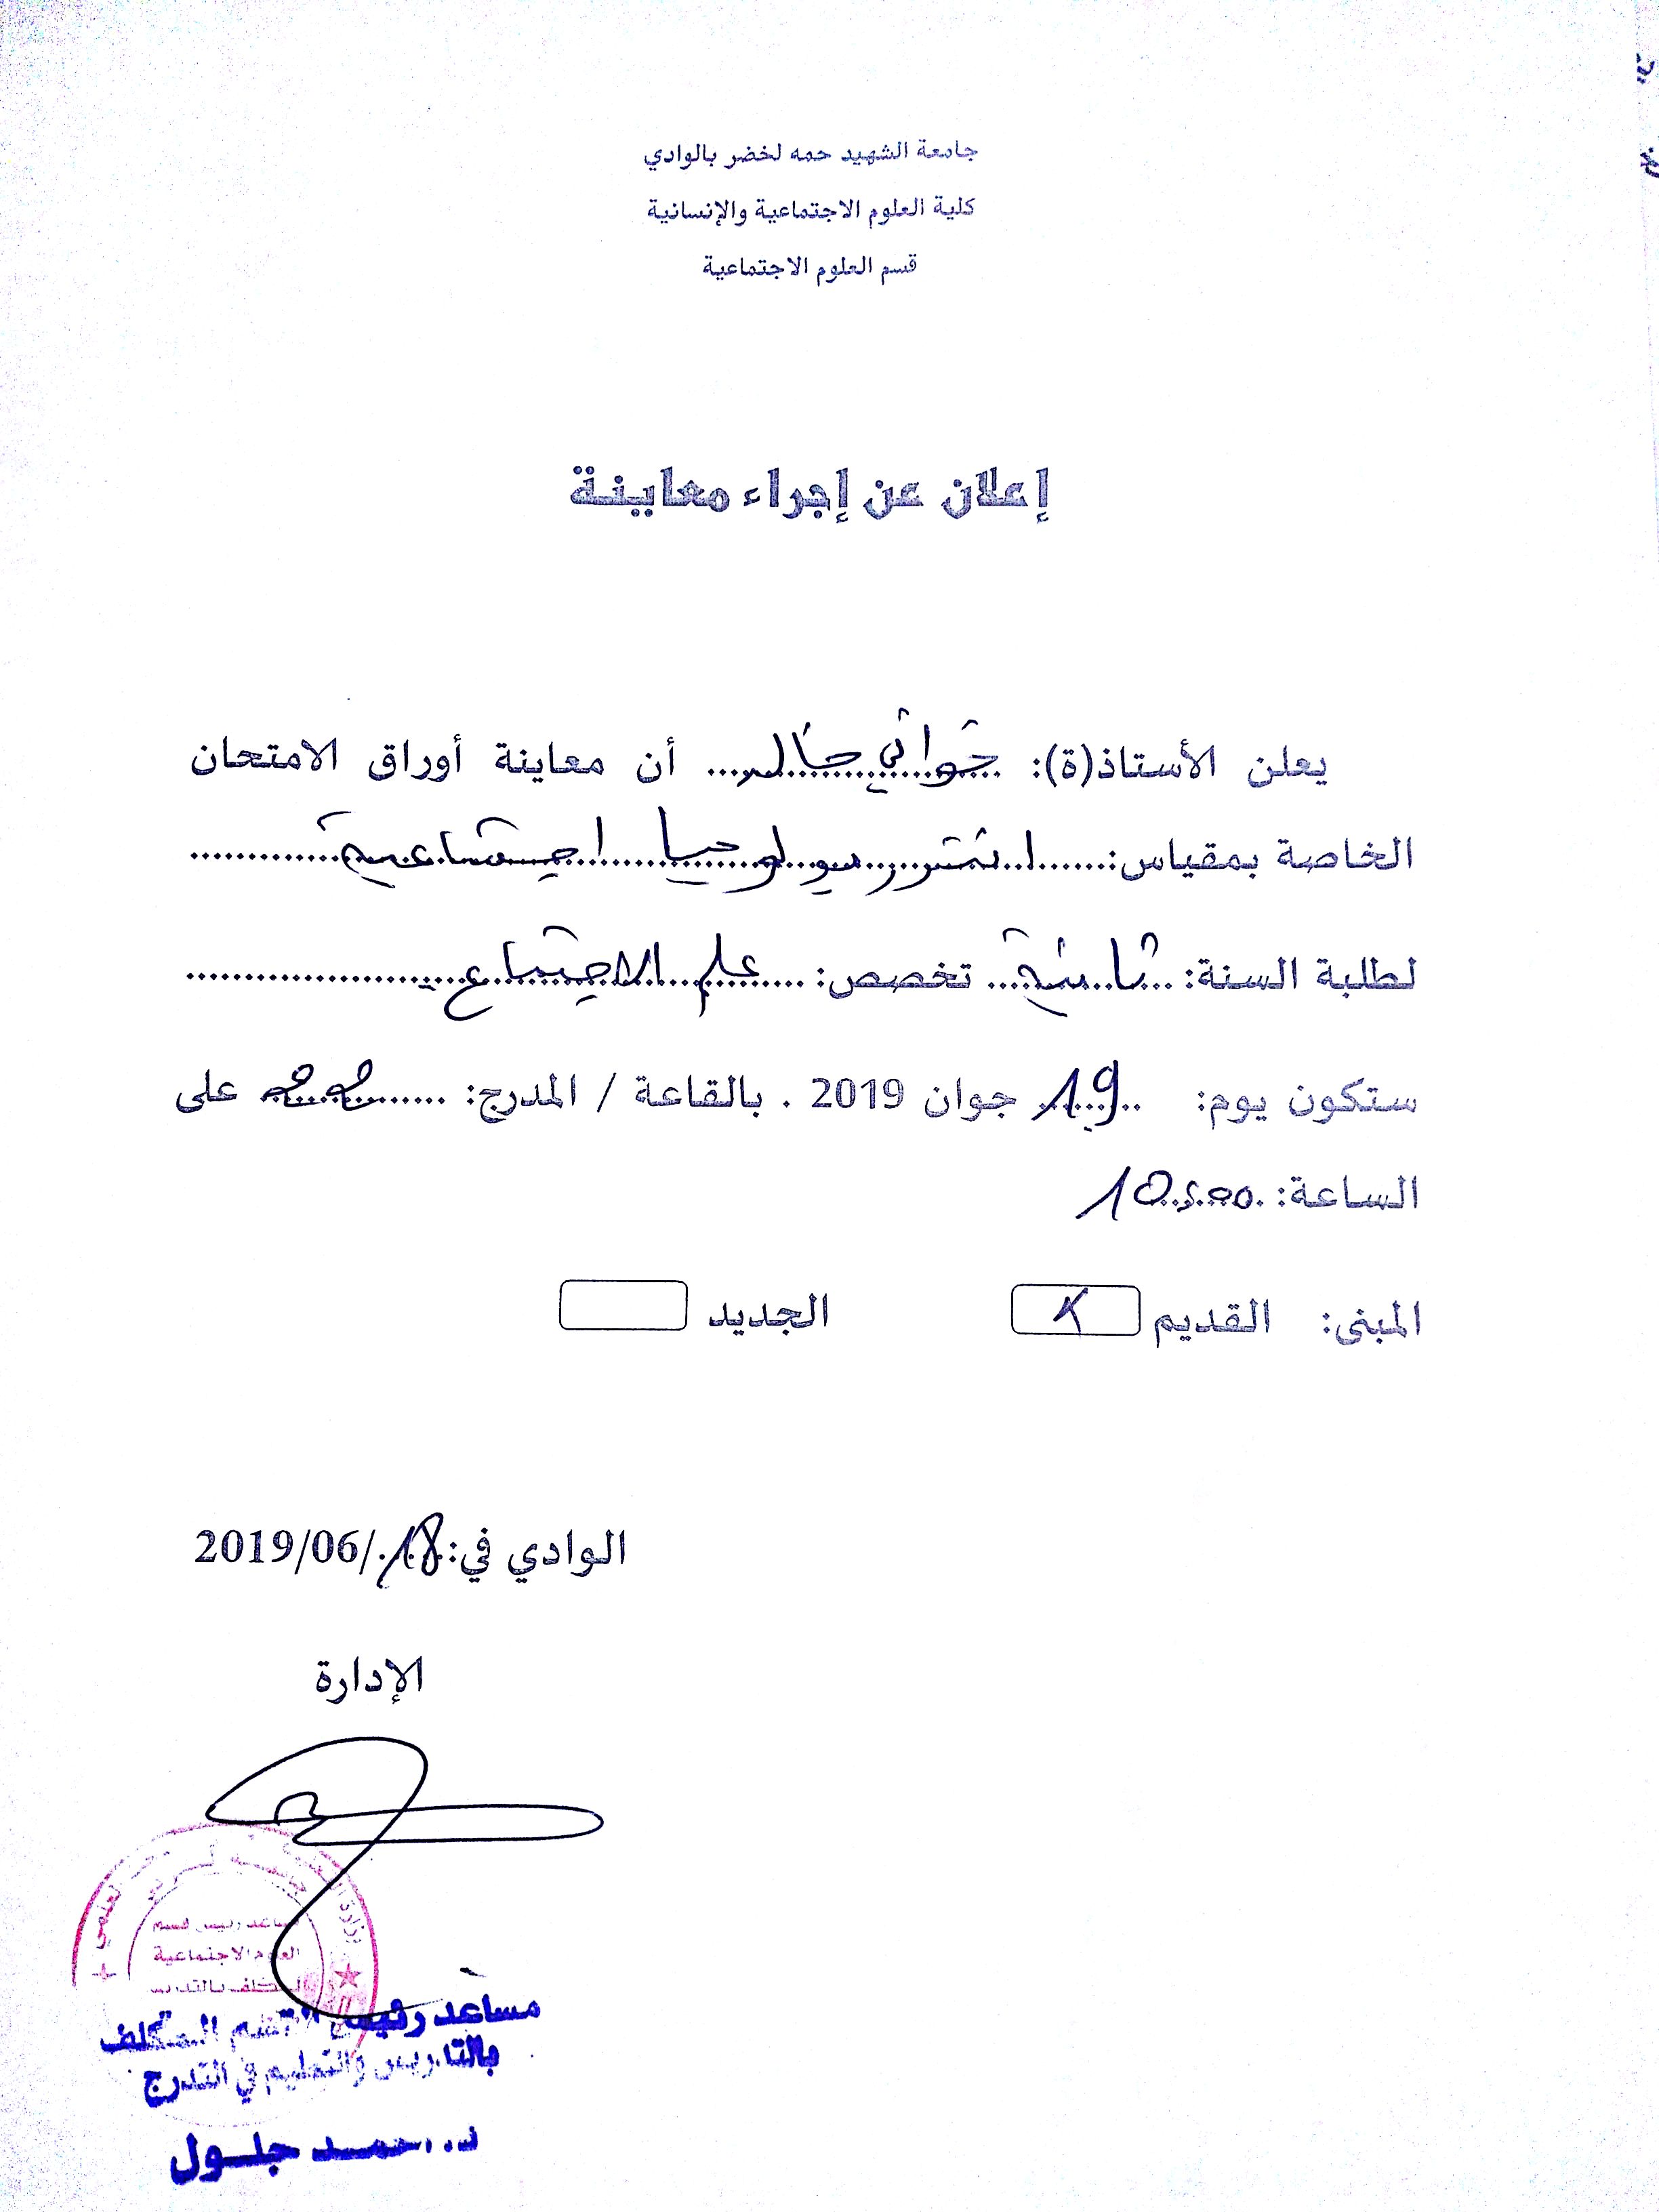 جامعة الشهيد حمه لخضر بالوادي
كلية العلوم الاجتماعية والإنسانية
قسم العلوم الاجتماعية
إعلان عن إجراء معاينة
يعلن الأستاذ(ة): خالد أن معاينة أوراق الامتحان
الخاصة بمقياس: انثروبولوجيا اجتماعية
لطلبة السنة: ثانية تخصص: علم الاجتماع
ستكون يوم: 19 جوان 2019 . بالقاعة / المدرج: على
الساعة: 10:00
المبنى: القديم X الجديد
الوادي في: 18/06/2019
الإدارة
مساعد رئيس قسم
العلوم الاجتماعية
المكلف بالتدريس
مساعد رئيس القسم المكلف
بالتدريس والتعليم في التدرج
جلول